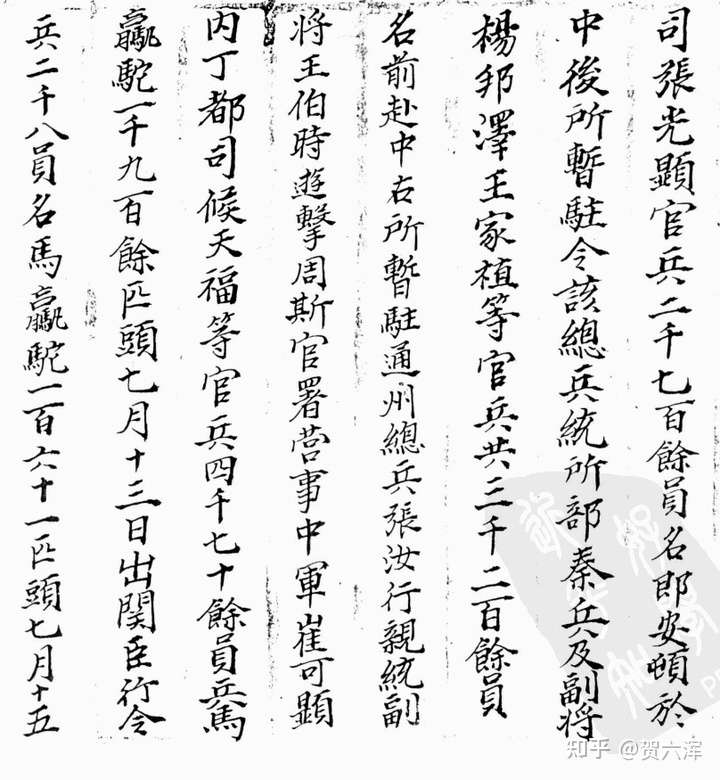 司張光顯官兵二千七百餘員名即安頓於
中後所暫駐令該總兵統所部秦兵及副将
楊邦澤王家植等官兵共三千二百餘員
名前赴中右所暫駐通州總兵張汝行親統副
將王伯時遊擊周斯官署营事中軍崔可顯
内丁都司候天福等官兵四千七十餘員兵馬
驘駝一千九百餘匹頭七月十三日出関臣行令
兵二千八員名馬驘駝一百六十一匹頭七月十五
知乎 @贺六浑